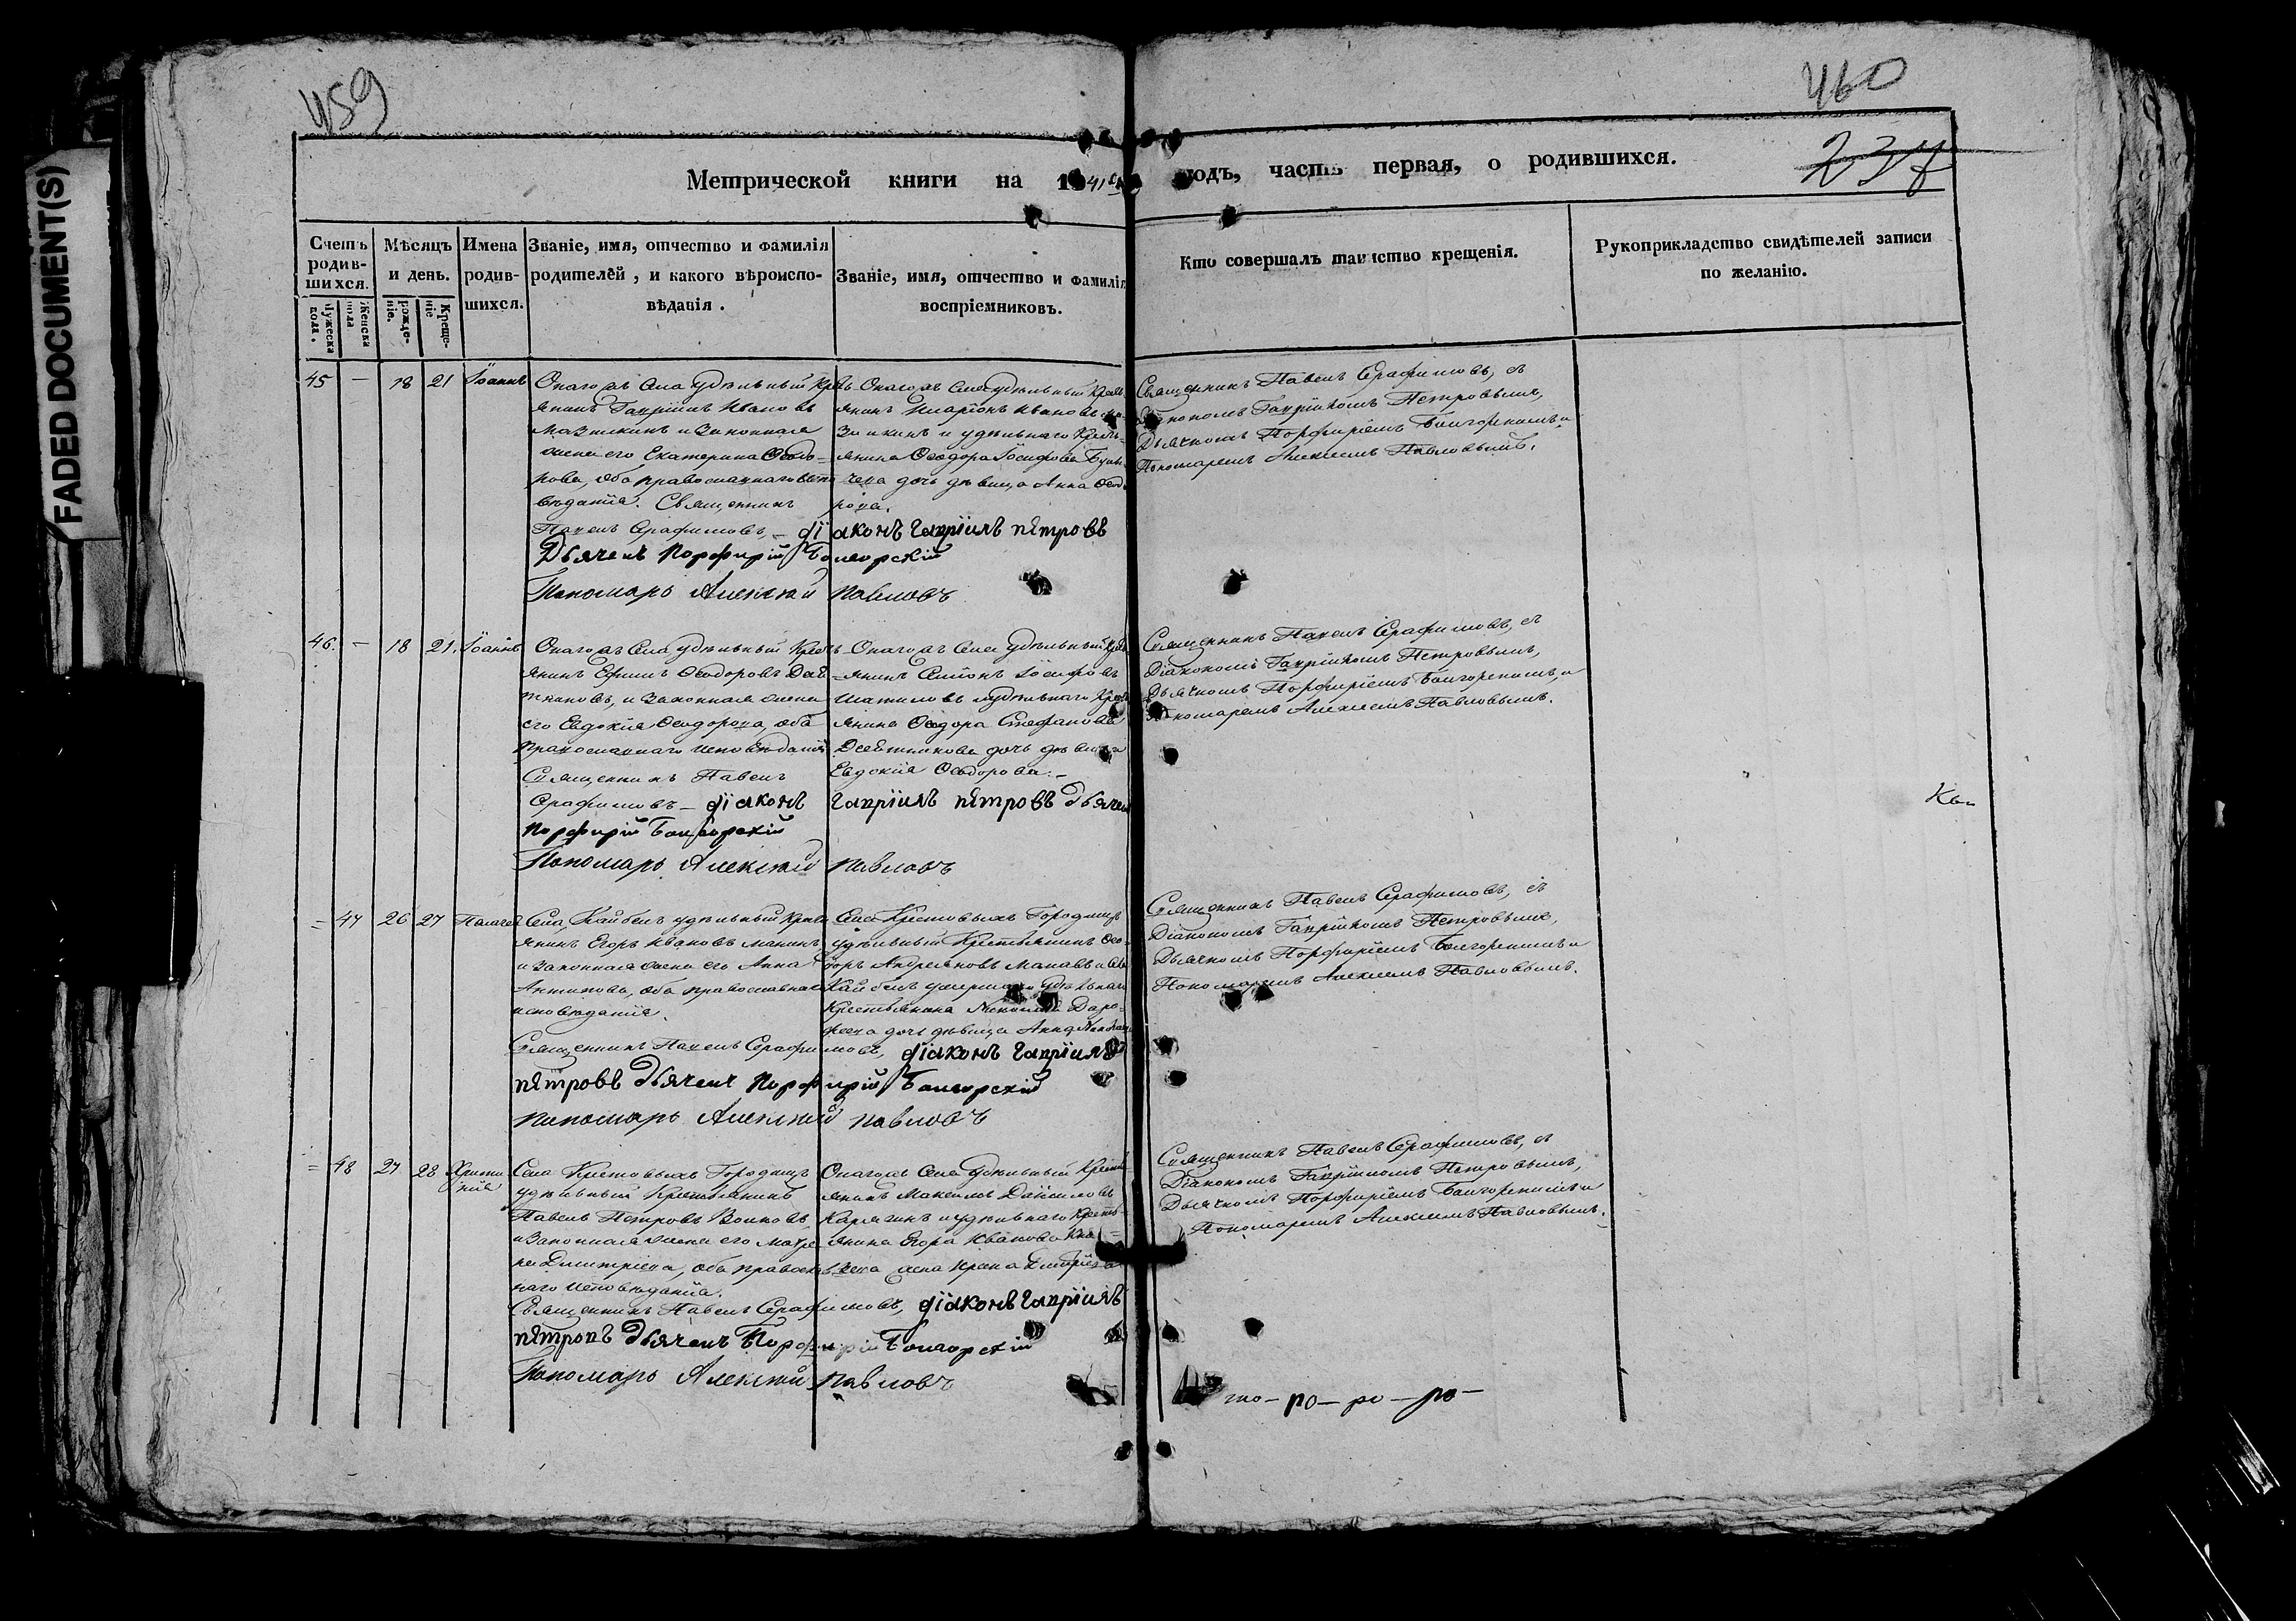 FADED DOCUMENT(S)
459
460
237
Метрической книги на 1841й годъ, часть первая, о родившихся.
Счетъ родившихся.
Мужеска пола.
Женска пола
Мѣсяцъ и день.
рожденіе.
Крещеніе
Имена родившихся.
Званіе, имя, отчество и фамилія
родителей, и какого вѣроиспо-
вѣданія.
Званіе, имя, отчество и фамилія
воспріемниковъ.
Кто совершалъ таинство крещенія.
Рукоприкладство свидѣтелей записи
по желанію.
45 — 18 21 Іоаннъ
Онагожъ Села удѣльный Кресть
янинъ Гавріилъ Ивановъ
и Законная
жена его Екатерина Ѳеодо=
рова, оба православнаго испо
вѣданія. Священникъ
Павелъ Серафимовъ — діаконъ гавріилъ петровъ
Дьячекъ Порфирій Болгорскій
Пономарь Алексѣй Павловъ
Онагожъ Села удѣльный Кресть
янинъ Иларіонъ Ивановъ
и удѣльнаго Кресть=
янина Ѳеодора Іосифова
дочь дѣвица Анна Ѳеод
рова.
Священникъ Павелъ Серафимовъ, съ
Діакономъ Гавріиломъ Петровымъ,
Дьячкомъ Порфиріемъ Болгорскимъ и
Пономаремъ Алексѣемъ Павловымъ.
46. — 18 21. Іоаннъ
Онагожъ Села удѣльный Кресть
янинъ Ефимъ Ѳеодоровъ
и законная жена
его Евдокія Ѳеодорова, оба
Православнаго исповѣданія
Священникъ Павелъ
Серафимовъ — діаконъ гавріилъ петровъ дьячекъ
Порфирій Болгорскій
Пономарь Алексѣй Павловъ
Онагожъ Села Удѣльный Крест
=янинъ Семіонъ Іосифовъ
Шатиловъ и удѣльнаго Крест
янина Ѳеодора Стефанова
дочь дѣвица
Евдокія Ѳеодорова. —
Священникъ Павелъ Серафимовъ, съ
Діакономъ Гавріиломъ Петровымъ,
Дьячкомъ Порфиріемъ Болгорскимъ, и
Пономаремъ Алексѣемъ Павловымъ.
= 47 26 27 Пелагея
Села Кайбелъ удѣльный Кресть
янинъ Егоръ Ивановъ
и Законная жена его Анна
Антипова, оба православнаго
исповѣданія.
Священникъ Павелъ Серафимовъ, діаконъ гавріилъ
петровъ дьячекъ Порфирій Болгорскій
пономарь Алексѣй Павловъ
Села Крестовыхъ Городищъ
удѣльный Крестьянинъ Ѳео=
доръ Андреяновъ и Села
Кайбелъ умершаго удѣльнаго
Крестьянина Николая Доро=
феева дочь дѣвица Анна
Священникъ Павелъ Серафимовъ, съ
Діакономъ Гавріиломъ Петровымъ,
Дьячкомъ Порфиріемъ Болгорскимъ и
Пономаремъ Алексѣемъ Павловымъ.
= 48 27 28 Христи
нія
Села Крестовыхъ Городищъ
удѣльный Крестьянинъ
Павелъ Петровъ Волковъ,
и Законная жена его Матре
на Димитріева, оба православ
наго исповѣданія.
Священникъ Павелъ Серафимовъ, діаконъ гавріилъ
петровъ дьячекъ Порфирій Болгорскій
Пономарь Алексѣй Павловъ
Онагожъ Села Удѣльный Кресть
янинъ Максимъ Даниловъ
Карягинъ и удѣльнаго Кресть
янина Егора Иванова
жена Ирина Дмитріева
Священникъ Павелъ Серафимовъ, съ
Діакономъ Гавріиломъ Петровымъ,
Дьячкомъ Порфиріемъ Болгорскимъ и
Пономаремъ Алексѣемъ Павловымъ.
то — ро — ро — ро —